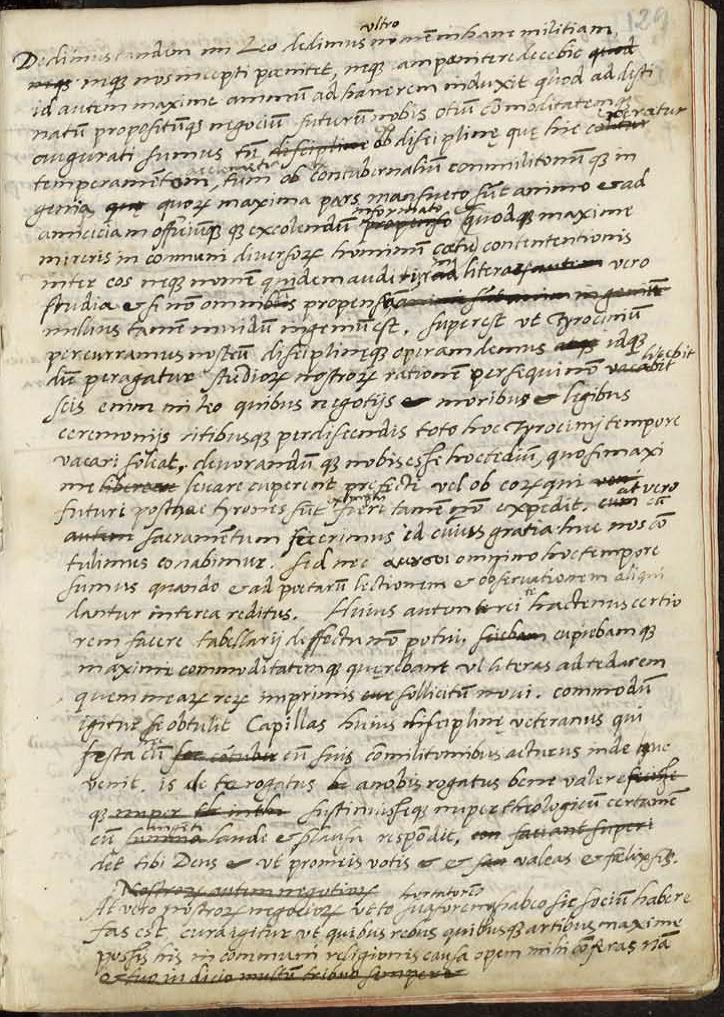 129
ultro
Dedimus tandem mi Leo dedimus nomen in hanc militiam
neque nos incepti poenitet, neque ut poenitere decebit quod
id autem maxime animum ad hanc rem induxit quod ad disti
natū propositūq negociū futurum nobis otiū commoditatemq
augurati sumus tū discipline ob disciplinę quę hic
temperamentum, tum ob contubernaliū commilitonumq in
genia, quę quorum maxima pars mansueto sūt animo & ad
amiciciam officiumq excolendum informato propenso quodq maxime
mireris in communi diversorum hominum cętu contentionis
inter eos neque nomen quidem auditur, ad litera vero
studia & si non omnibus propensum
nullius tamen invidū ingeniū est. Superest ut Tyrociniū
percurramus nostrū disciplineque operam demus atq idque
dū peragatur studiorum nostrorum rationem persequi non vacabit licebit
scis enim mi Leo quibus negotijs & moribus & legibus
ceremonijs ritibusq perdiscendis toto hoc Tyrocinij tempore
vacari soleat, devorandūq nobis esse hoc tediū, quo si maxi
me liberare levare cuperent prefecti vel ob eorum qui
futuri posthac tyrones sūt exemplū fieri tamen nō expedit. at vero cū
autem sacramentum fecerimus id cuius gratia huc nos cō
tulimus conabimur. Sed nec omnino hoc tempore
sumus quando & ad poetarū lectionem & observationem aliqui
dantur interea reditus. Huius autem te rei hactenus certio
rem facere tabellarij deffectu nō potui. cupiebamq
maxime commoditatemq quęrebam ut literas ad te darem
quem mearum rerum imprimis sollicitū novi. commodū
igitur se obtulit Capillas huius disciplinę veteranus qui
festa cū suis commilitonibus acturus inde huc
venit. is de te rogatus a nobis rogatus bene valere
q nuper sustinuisseque nuper theologicū certamē
cū ingēti laude & plausu respōdit, faciant superi
det tibi Deus & ut pro meis votis & valeas & fœlix sis.
Nostrorum autem negotiorum hortatorem
At vero nostrorum negociorum ut te suasorem habeo sic socium habere
fas est. cura igitur ut quibus rebus quibusque artibus maxime
possis his in communi religionis causa opem mihi cōferas nā
& tuo iudicio multum tribuo semper